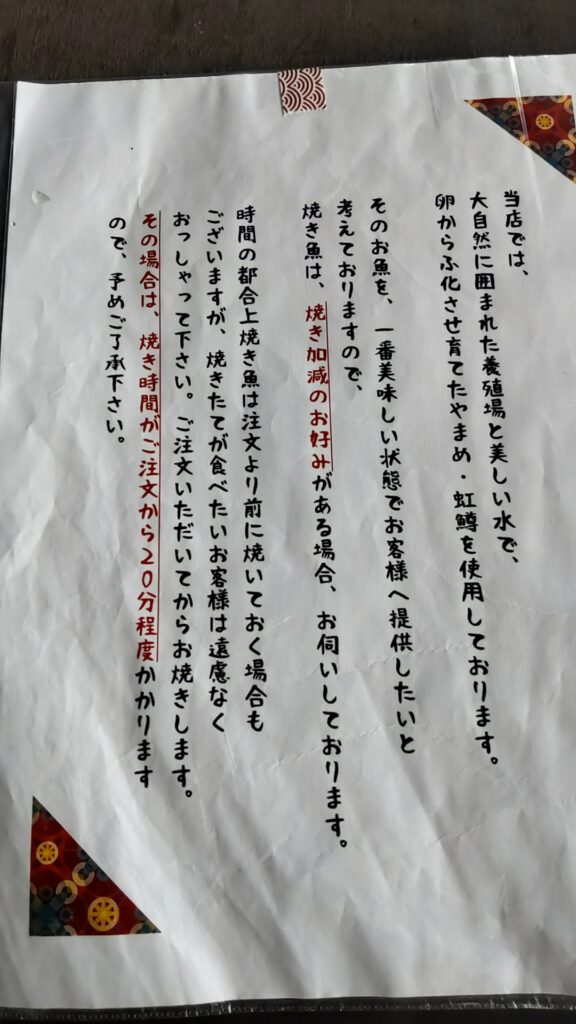 当店では、
大自然に囲まれた養殖場と美しい水で、
卵からふ化させ育てたやまめ・虹鱒を使用しております。
そのお魚を、一番美味しい状態でお客様へ提供したいと
考えておりますので、
焼き魚は、焼き加減のお好みがある場合、お伺いしております。
時間の都合上焼き魚は注文より前に焼いておく場合も
ございますが、焼きたてが食べたいお客様は遠慮なく
おっしゃって下さい。ご注文いただいてからお焼きします。
その場合は、焼き時間がご注文から20分程度かかります
ので、予めご了承下さい。